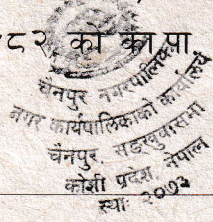 ८२ को का.पा.
चैनपुर नगरपालिका
नगर कार्यपालिकाको कार्यालय
चैनपुर, सङ्खुवासभा
कोशी प्रदेश, नेपाल
स्था: २०७३